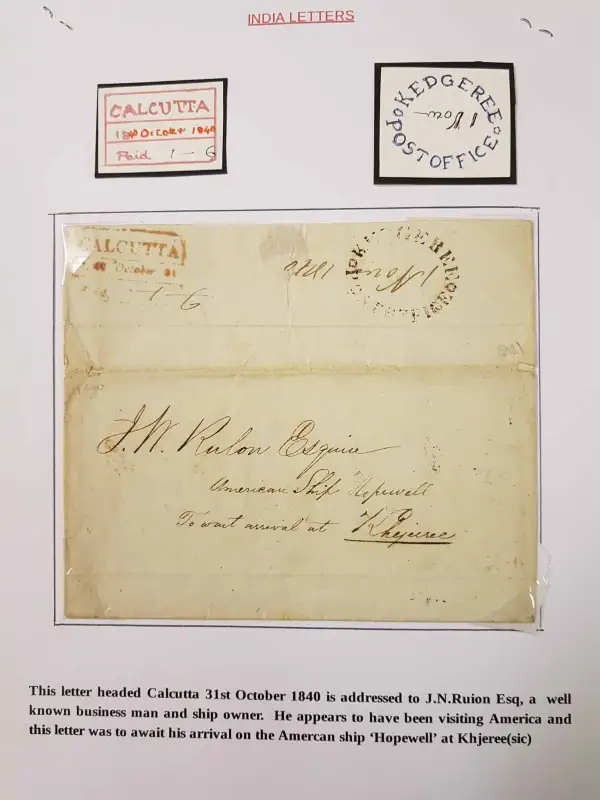 INDIA LETTERS
CALCUTTA
October 1840
Paid 1-6
KEDGEREE
1 Nov
POST OFFICE
CALCUTTA
October
1-6
1 Nov
J. W. Rulon Esquire
American Ship Hopewell
To wait arrival at Khejeree
This letter headed Calcutta 31st October 1840 is addressed to J.N.Ruion Esq, a well
known business man and ship owner. He appears to have been visiting America and
this letter was to await his arrival on the Amercan ship ‘Hopewell’ at Khjeree(sic)